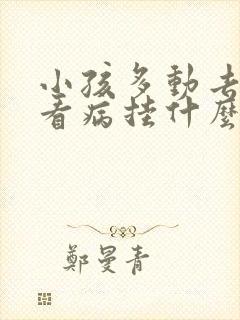 小孩多動去
看病挂什麼
鄭曼青